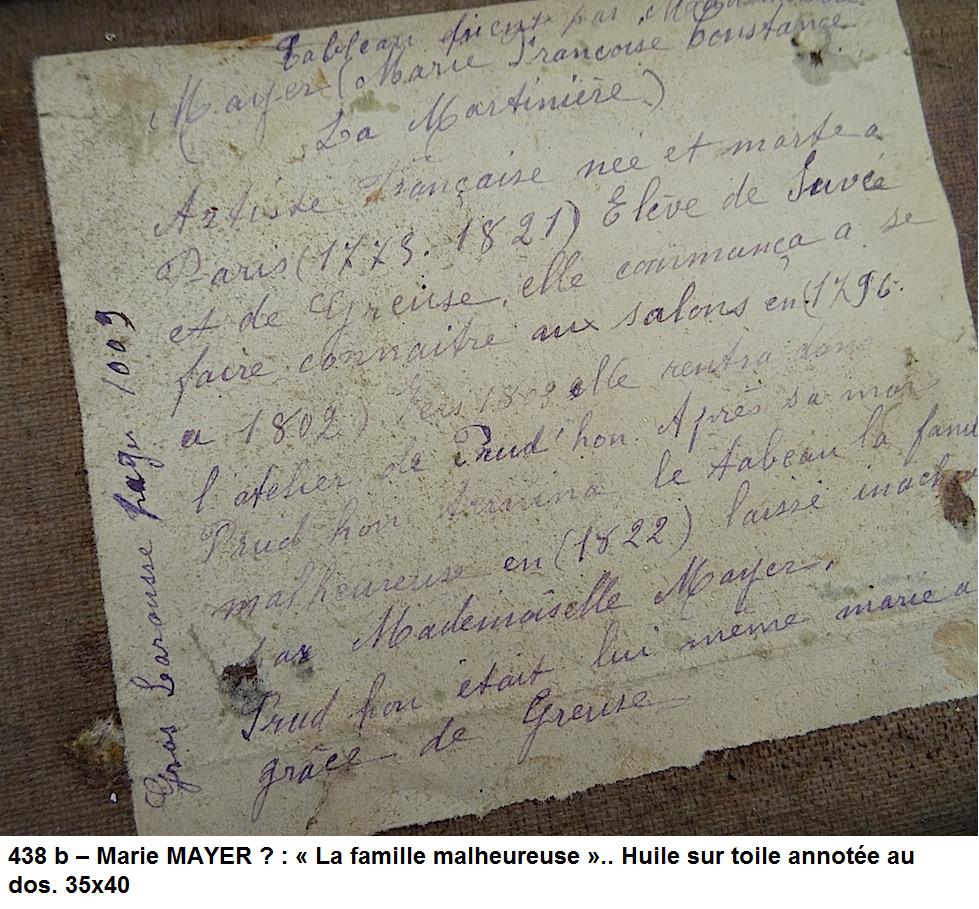 Tableau peint par Mademoiselle
Mayer (Marie Françoise Constance
La Martinière)
Artiste Française née et morte a
Paris (1775. 1821) Elève de Suvée
et de Greuse, elle commança a se
faire connaitre aux salons en (1796.
a 1802) Vers 1803 elle rentra dans
l'atelier de Prud'hon. Après sa mor
Prud hon termina le tabeau la fami
malheureuse en (1822) laissé inach
par Mademoiselle Mayer.
Prud hon était lui même marie a
grâce de Greuse
Gros Larousse page 1003
438 b – Marie MAYER ? : « La famille malheureuse ».. Huile sur toile annotée au
dos. 35x40